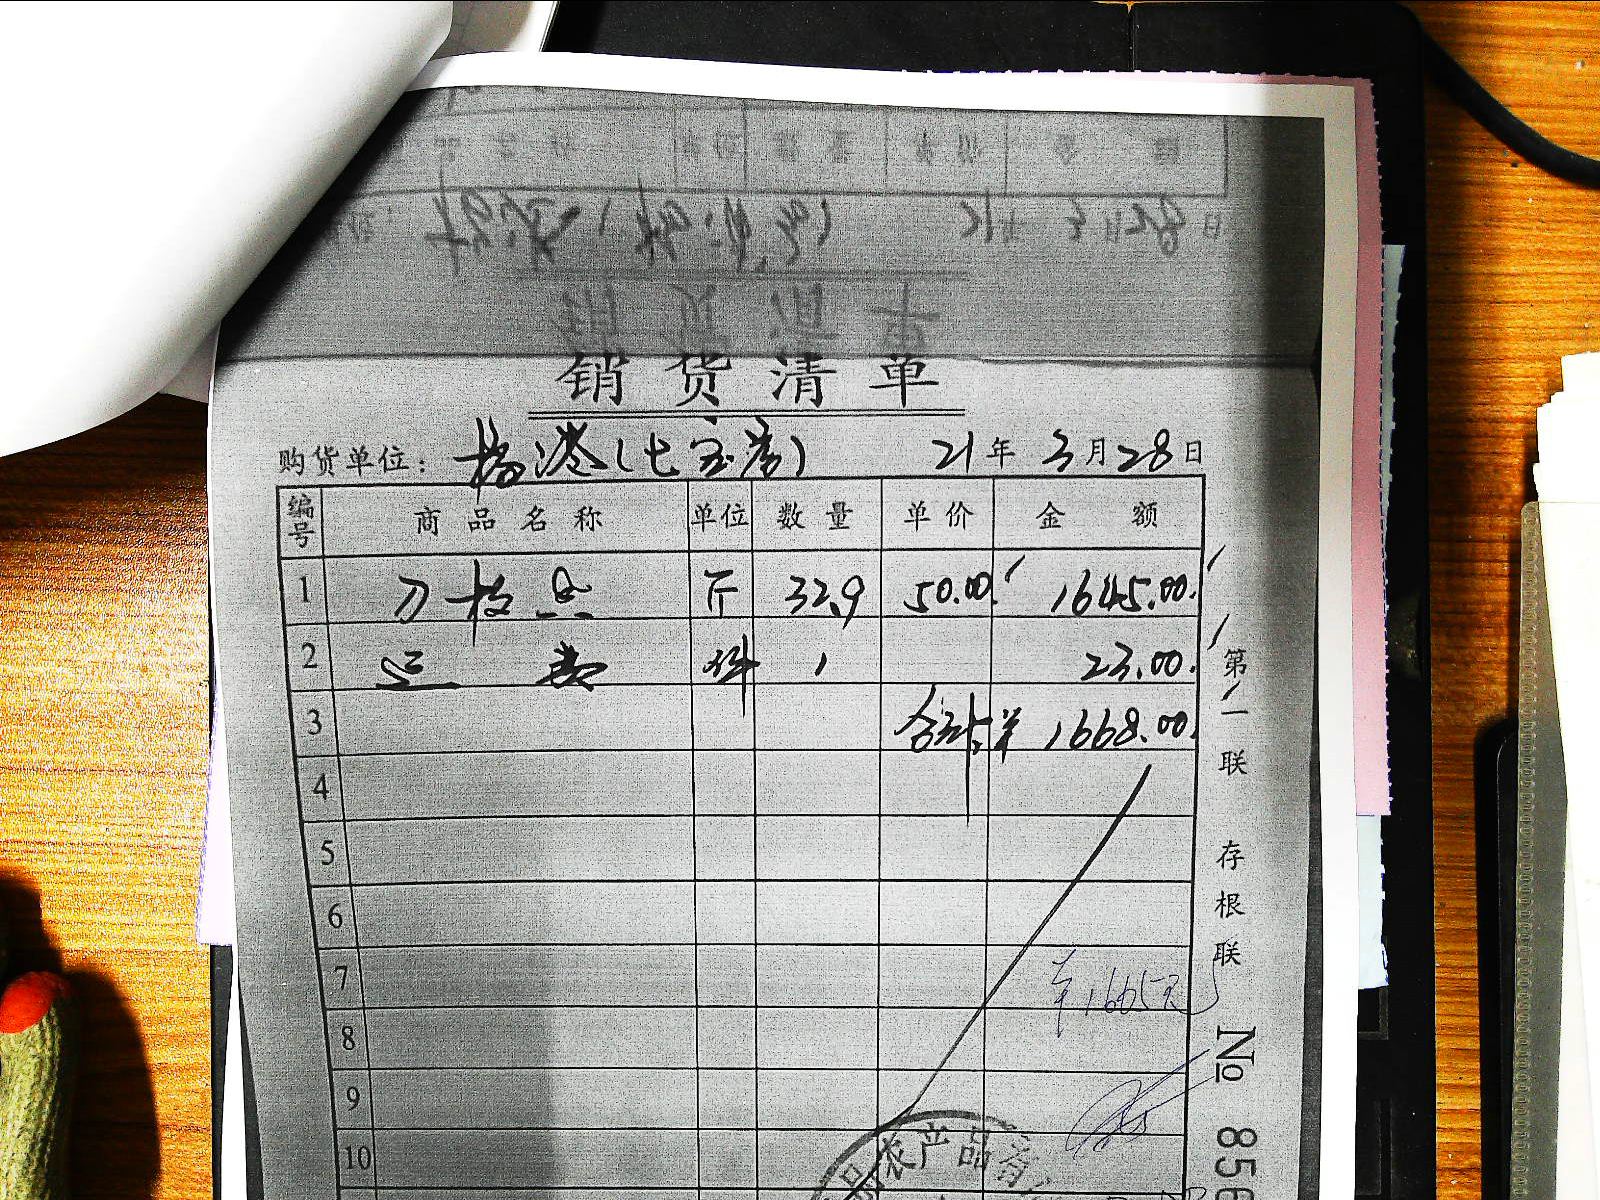 销货清单
购货单位：杨港(七宝店) 21年3月28日
编号 商品名称 单位 数量 单价 金额
1 刀板鱼 斤 32.9 50.00 1645.00
2 运费 件 1 23.00
3 合计:¥ 1668.00
4
5
6
7 1665元
8
9
10
第一联 存根联
№ 856
品农产品有